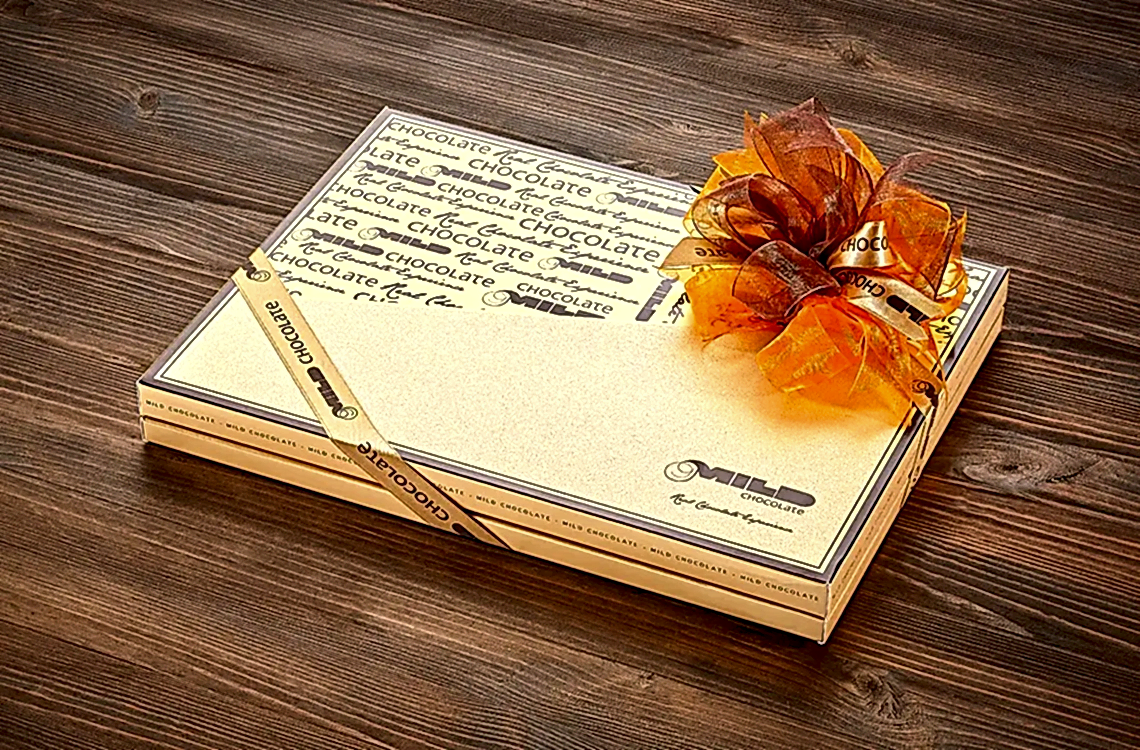 CHOCOLATE Real Chocolate Experience
CHOCOLATE Chocolate Experience
LATE MILD MILD CHOCOLATE MILD
CHOCOLATE Real Chocolate Experience CHOCOLATE
LATE CHOCOLATE Chocolate Experience
MILD MILD CHOCOLATE Real Chocolate Experience MILD
CHOCOLATE Real CHOCOLATE
Experience MILD
MILD CHOCOLATE
MILD CHOCOLATE
CHOCOLATE
CHOCO
MILD
CHOCOLATE
Real Chocolate Experience
MILD CHOCOLATE - MILD CHOCOLATE - MILD CHOCOLATE
MILD CHOCOLATE - MILD CHOCOLATE - MILD CHOCOLATE - MILD CHOCOLATE